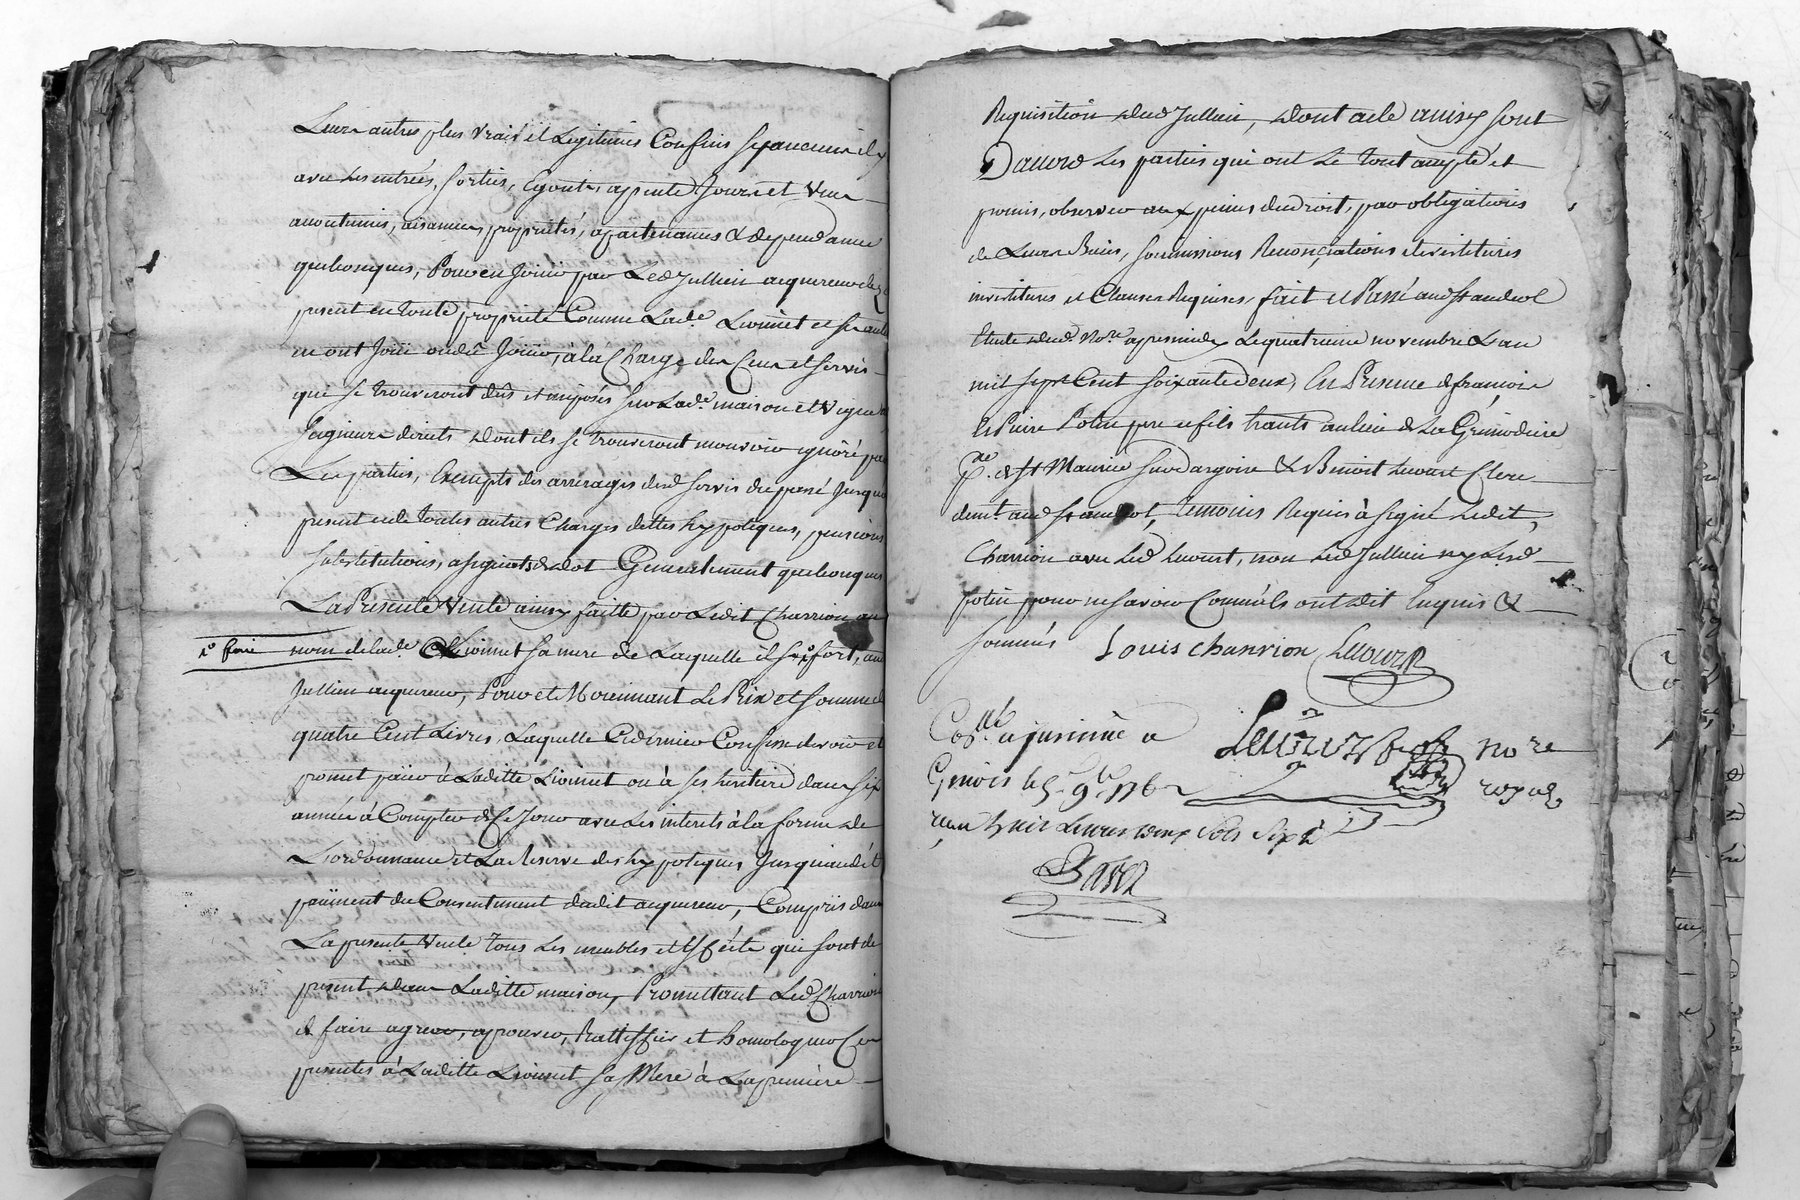 Leurs autres plus vrais et Legitimes Confins sy aucuns il y
avec Les entrées, sorties, Egouts, apente Jours et Vue
accoutumés, aisances proprietés, apartenances & dependances
quelconques, Pour en Jouir par Led Jullien acquereur dez a
present en toute proprieté Comme Lade Lionnet et ses aut
en ont Joüi ou dû Joüir, à la Charge des Cens et servis
que se trouveront dûs et imposés sur Lade maison et Vigne
seigneurs directs dont ils se trouveront mouvoir ignoré par
Les parties, Exempts des arrerages desd servis du passé Jusqua
present et de toutes autres Charges dettes hypoteques, pensions
substitutions, assignats de dot Generalement quelconques
La Presente Vente ainsy faitte par Ledit Charrion au
nom de lade Lionnet sa mere de Laquelle il se fait fort, aud
Jullien acquereur, Pour et Moyennant Le Prix et somme de
quatre Cent Livres, Laquelle Ce dernier Confesse devoir et
promet païer à Laditte Lionnet ou à ses heritiers dans six
années à Compter de Ce Jour avec Les interets à la forme de
L'ordonnance et La Reserve des hypoteques Jusqu'audit
païement du Consentement dudit acquereur, Compris dans
La presente Vente tous Les meubles et Effets qui sont de
present dans Laditte maison, Promettant Led Charrion
de faire agreer, aprouver, Rattiffier et homologuer Ces
presentes à Laditte Lionnet sa Mere à La premiere
Requisition dud Jullien, dont acte ainsy sont
D'accord Les parties qui ont Le tout accepté et
promis, observer aux peines de droit, par obligations
de Leurs Biens, soumissions Renonciations et vestitures
investitures et Clauses Requises, fait et Passé aud St andeol
Etude dud Nore apres midy Le quatrieme novembre L'an
mil sept Cent soixante deux, En Presence de françois
et Pierre Potin pere et fils habts au lieu de La Grimodiere
Psse de St Maurice sur dargoire & Benoit Lecourt Clerc
demt aud St andeol, Temoins Requis à signé Ledit
Charrion avec Led Lecourt, non Led Jullien ny Lesd
potin pour ne savoir Comme ils ont dit Enquis &
sommés Louis chanrion Lecourt
Collé et insinué a
nore
Givors le 5e 9bre 1762
royal
reçu huit Livres deux sols six d